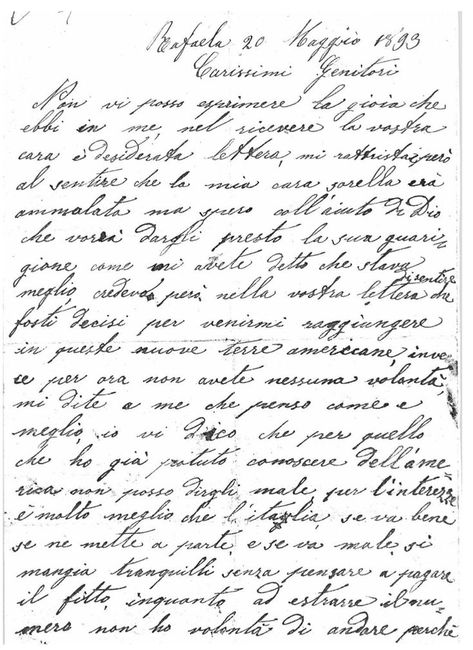 Rafaela 20 Maggio 1893
Carissimi Genitori
Non vi posso esprimere la gioia che
ebbi in me, nel ricevere la vostra
cara e desiderata lettera, mi rattristai però
al sentire che la mia cara sorella era
ammalata ma spero coll'aiuto di Dio
che vorrà dargli presto la sua guari-
gione come mi avete detto che stava
meglio, credevo però, nella vostra lettera di sentire che
fosti decisi per venirmi raggiungere
in queste nuove terre americane, inve-
ce per ora non avete nessuna volontà,
mi dite a me che penso come e
meglio, io vi dico che per quello
che ho già potuto conoscere dell'ame-
rica non posso dirgli male, per l'interesse
è molto meglio che l'itaglia se va bene
se ne mette a parte, e se va male si
mangia tranquilli senza pensare a pagare
il fitto, inquanto ad estrarre il nu-
mero non ho volontà di andare perchè